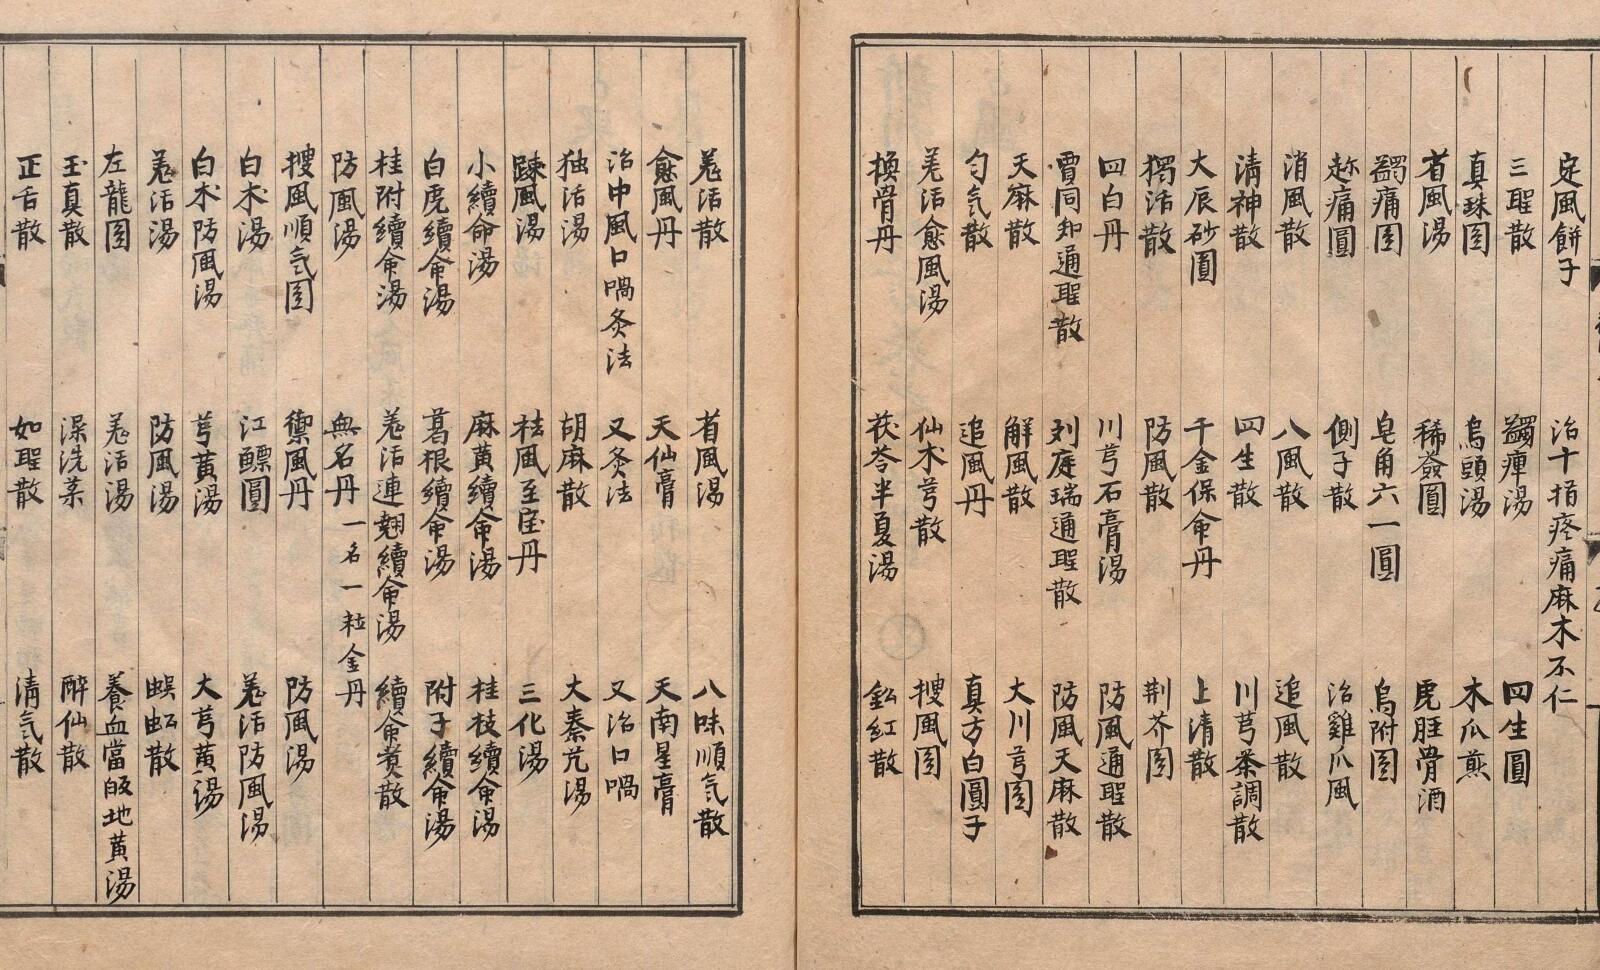 定風餅子 治十指疼痛麻木不仁
三聖散 蠲痺湯 四生圓
真珠圎 烏頭湯 木瓜煎
省風湯 稀薟圓 虎脛骨酒
蠲痛圎 皂角六一圓 烏附圎
趂痛圓 側子散 治雞爪風
消風散 八風散 追風散
清神散 四生散 川芎茶調散
大辰砂圓 千金保命丹 上清散
獨活散 防風散 荆芥圎
四白丹 川芎石膏湯 防風通聖散
賈同知通聖散 刘庭瑞通聖散 防風天麻散
天麻散 解風散 大川芎圎
勻氣散 追風丹 真方白圓子
羌活愈風湯 仙术芎散 搜風圎
換骨丹 茯苓半夏湯 釡紅散
羌活散 省風湯 八味順氣散
愈風丹 天仙膏 天南星膏
治中風口喎灸法 又灸法 又治口喎
独活湯 胡麻散 大秦艽湯
踈風湯 祛風至宝丹 三化湯
小續命湯 麻黄續命湯 桂枝續命湯
白虎續命湯 葛根續命湯 附子續命湯
桂附續命湯 羌活連翹續命湯 續命煑散
防風湯 無名丹 一名一粒金丹
搜風順气圎 禦風丹 防風湯
白术湯 江鰾圓 羌活防風湯
白术防風湯 芎黄湯 大芎黄湯
羌活湯 防風湯 蜈蚣散
左龍圎 羌活湯 養血當皈地黄湯
玉真散 澡洗藥 醉仙散
正舌散 如聖散 清氣散